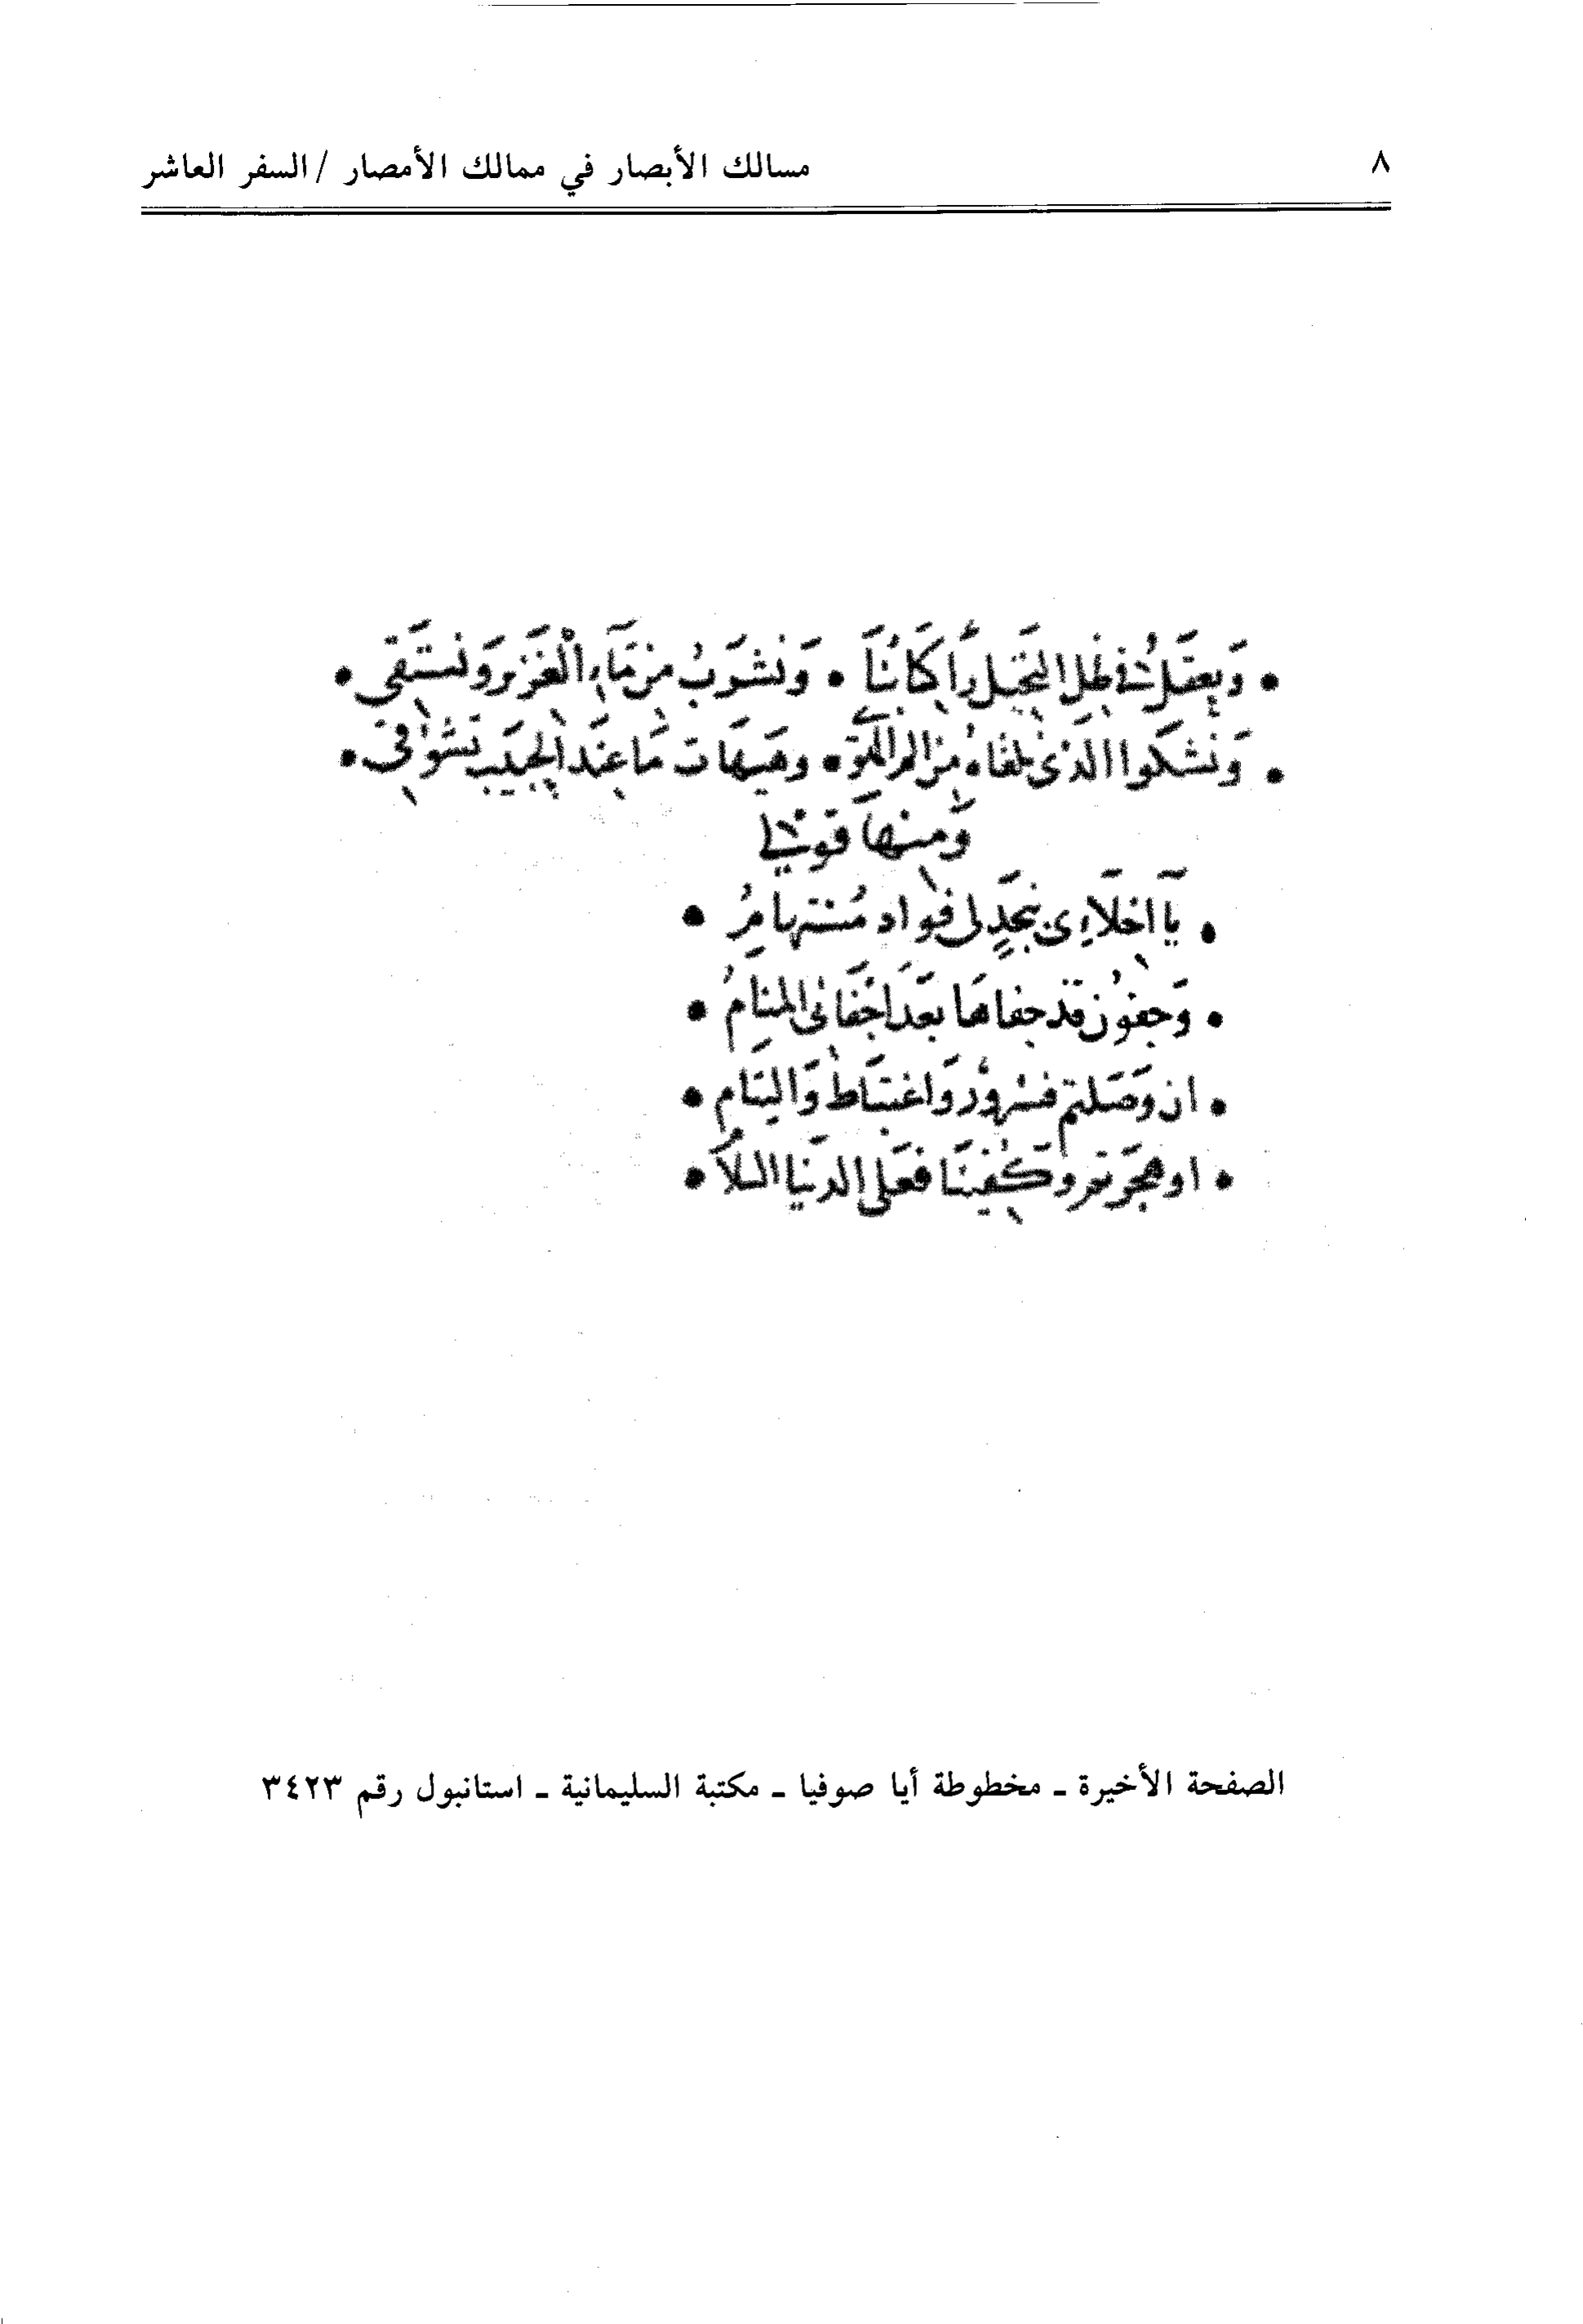 ٨ مسالك الأبصار في ممالك الأمصار / السفر العاشر
وَنعقل في ظل النخيل ركابنا • وَنشرب من مَاء الغزير ونستقي •
وَنشكوا الذى نلقاه من الم • وهيهات مَا عندَ الحبيب تشوقى •
وَمنها قولى
• يا اخلاءى بنجدٍ لى فواد مُستهامُ •
• وَجفون قد جفاها بعدَ اجفانى المنامُ •
• ان وَصَلتم فسرور وَاغتباط وَالتيام •
• او هجرتم وكفينَا فعَلى الدنيا السلام •
الصفحة الأخيرة ـ مخطوطة أيا صوفيا ـ مكتبة السليمانية ـ استانبول رقم ٣٤٢٣